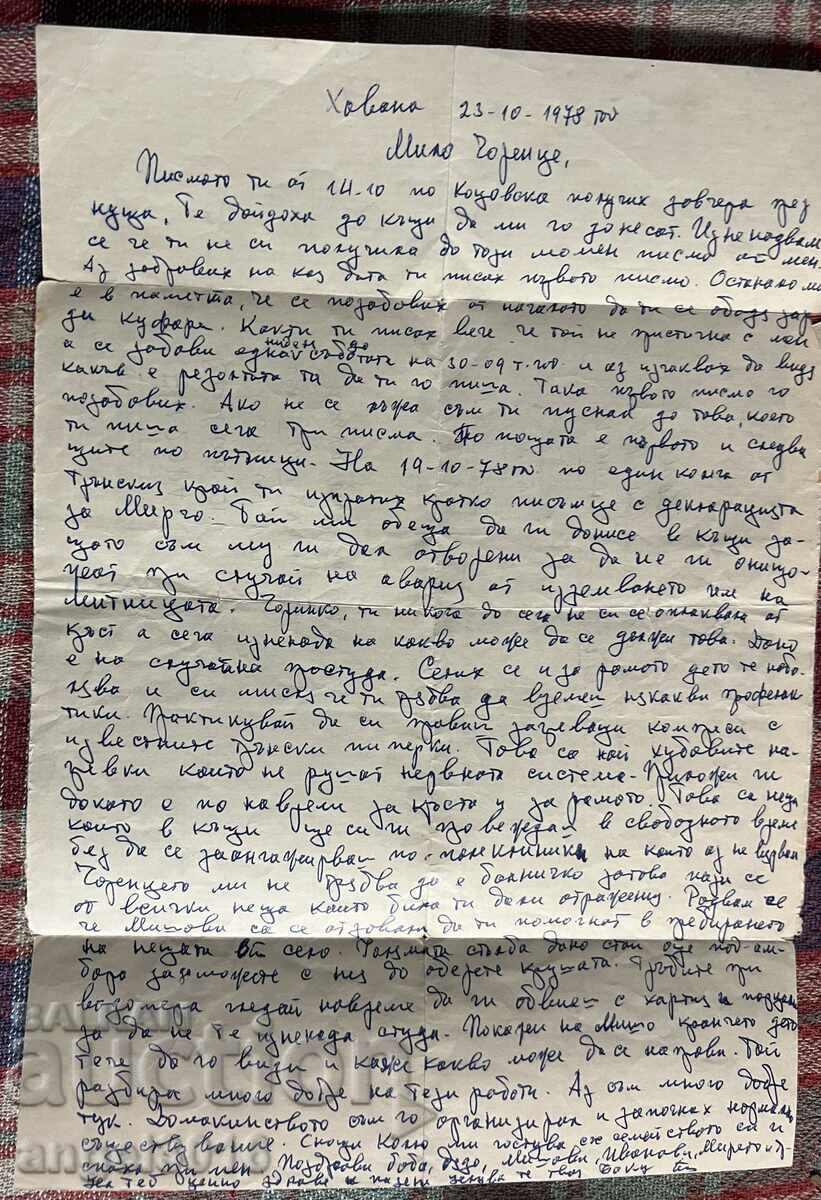 Хавана 23-10-1978 год
Мило Чоренце,
Писмото ти от 14.10 по Коцовска получих завчера през
нуща. Те дойдоха до къщи да ми го донесат. Изненадвам
се че ти не си получила до този момен писмо от мен.
Аз забравих на коя дата ти писах първото писмо. Останало ми
е в паметта, че се позабових от началото да ти се обадя зар
ди куфара. Както ти писах вече че той не пристигна с мен
а се забави една седмица до съботата на 30-09 т.год и аз изчаквах да видя
какъв е резонтата та да ти го пиша. Така първото писмо го
позабових. Ако не се лъжа съм ти пуснал до това, което
ти пиша сега три писма. По пощата е първото и следва
щите по пътници. На 19-10-78 год по един колега от
Трънския край ти изпратих кратко писъмце с декларацията
за Мирчо. Той ми обеща да ги донисе в къщи за-
щото съм му ги дал отворени за да не ги унищо-
жат при случай на авария от иземването им на
митницата. Чоринко, ти никога до сега не си се оплаквала от
кръст а сега изненада на какво може да се дължи това. Дано
е на случайна простуда. Сетих се и за рамото дето те набо-
лява и си мисля че ти трябва да вземеш някакви профелак
тики. Практикувай да си правиш загреващи компреси с
известните Трънски пиперки. Това са най хубавите на-
гревки които не рушат нервната система. Приложи ги
докато е по на време за кръста и за рамото. Това са неща
които в къщи ще си ги провеждаш в свободното време
без да се заангажирваш по поликлиники на които аз не вярвам
Чоренцето ми не трябва да е болничко затова пази се
от всички неща които биха ти дали отражения. Радвам се
че Мишови са се отзовали да ти помогнат в прибирането
на нещата в село. Голямата стълба дано стои още под ам-
бара за да можете с нея да оберете крушата. Тръбите при
водомера гледай навреме да ги обвиеш с хартия и парцали
за да не те изненада студа. Покажи на Мишо кранчето дето
тече да го види и каже какво може да се направи. Той
разбира много добре на тези работи. Аз съм много добре
тук. Домакинството съм го организирал и започнах нормално
съществование. Снощи Колю ми гостува със семейството си и
спаха при мен. Поздрави баба, дядо, Мишови, Иванови, Мирето и
теб здраве и целува те твоя